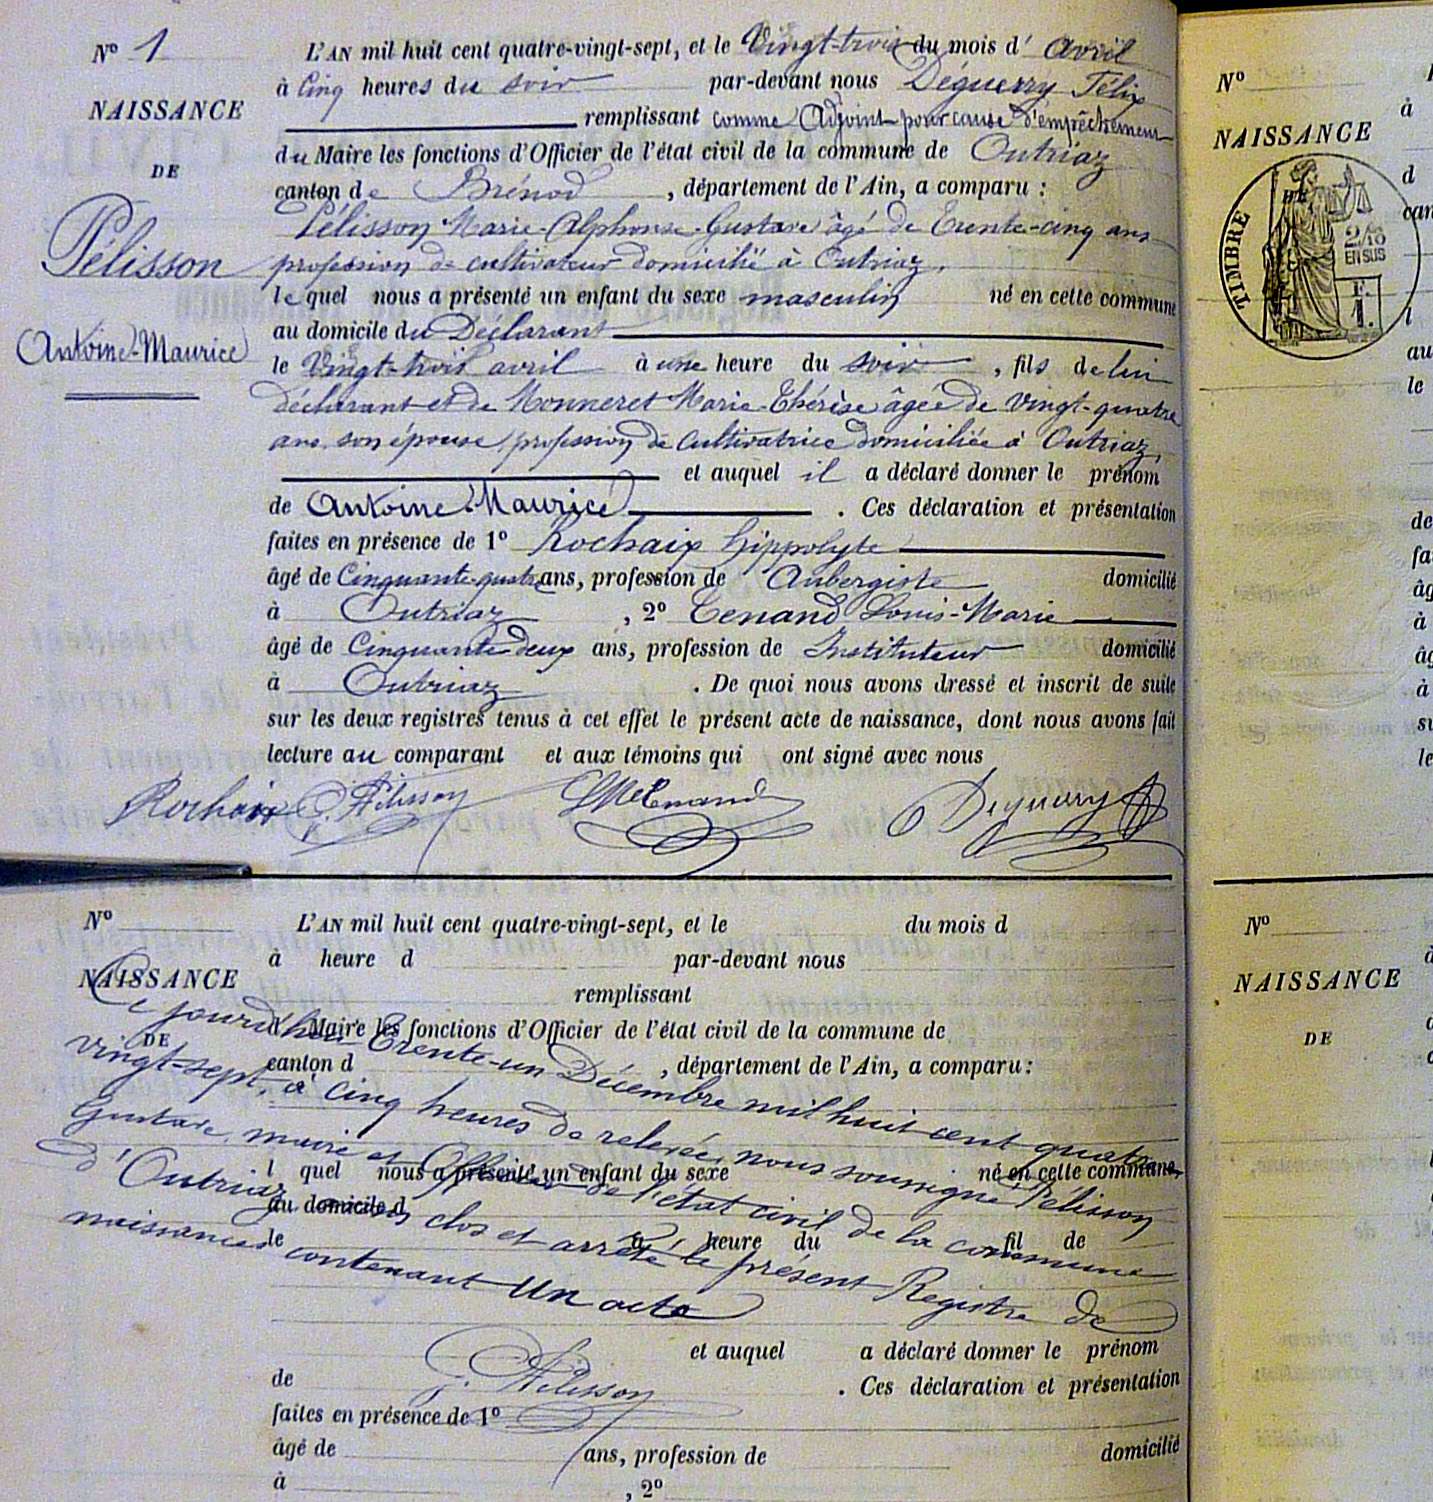 N° 1
NAISSANCE
DE
Pélisson
Antoine-Maurice
L'AN mil huit cent quatre-vingt-sept, et le Vingt-trois du mois d'avril
à Cinq heures du soir par-devant nous Déguerry Félix
remplissant comme Adjoint pour cause d'empêchement
du Maire les fonctions d'Officier de l'état civil de la commune de Outriaz
canton de Brénod, département de l'Ain, a comparu :
Pélisson Marie-Alphonse-Gustave âgé de Trente-cinq ans
profession de cultivateur domicilié à Outriaz,
lequel nous a présenté un enfant du sexe masculin né en cette commune
au domicile du Déclarant
le Vingt-trois avril à une heure du soir, fils de lui
déclarant et de Monneret Marie-Thérèse âgée de vingt-quatre
ans son épouse profession de cultivatrice domiciliée à Outriaz,
et auquel il a déclaré donner le prénom
de Antoine-Maurice. Ces déclaration et présentation
faites en présence de 1° Rochaix Hippolyte
âgé de Cinquante-quatre ans, profession de Aubergiste domicilié
à Outriaz, 2° Tenand Louis-Marie
âgé de Cinquante deux ans, profession de Instituteur domicilié
à Outriaz. De quoi nous avons dressé et inscrit de suite
sur les deux registres tenus à cet effet le présent acte de naissance, dont nous avons fait
lecture au comparant et aux témoins qui ont signé avec nous
Rochaix G. Pélisson LM Tenand Déguerry
N°
L'AN mil huit cent quatre-vingt-sept, et le du mois d
à heure d par-devant nous
NAISSANCE
remplissant
d Maire les fonctions d'Officier de l'état civil de la commune de
DE
canton d , département de l'Ain, a comparu :
l quel nous a présenté un enfant du sexe né en cette commune,
au domicile d
le à heure du fil de
Ce jourd'hui Trente-un Décembre mil huit cent quatre
vingt-sept, à cinq heures de relevée, nous soussigné Pélisson
Gustave, maire et Officier de l'état civil de la commune
d'Outriaz, avons clos et arrêté le présent Registre de
naissances contenant Un acte
et auquel a déclaré donner le prénom
G. Pélisson
de . Ces déclaration et présentation
faites en présence de 1°
âgé de ans, profession de domicilié
à , 2°
N°
NAISSANCE
DE
TIMBRE
2/10
EN SUS
à
d
can
l
au
le
de
âg
à
âg
à
su
le
N°
NAISSANCE
DE